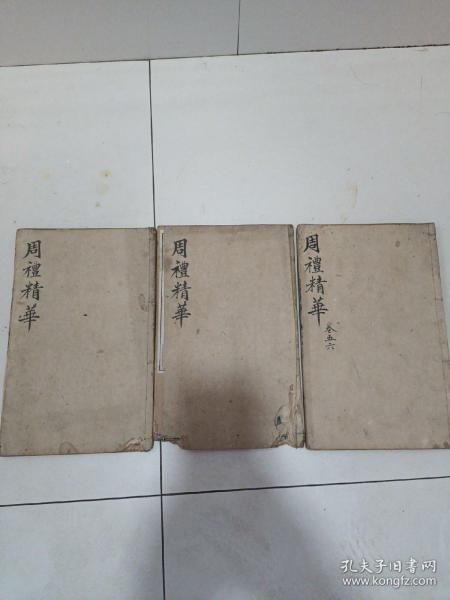 周禮精華
周禮精華
周禮精華
卷五六
孔夫子旧书网
www.kongfz.com